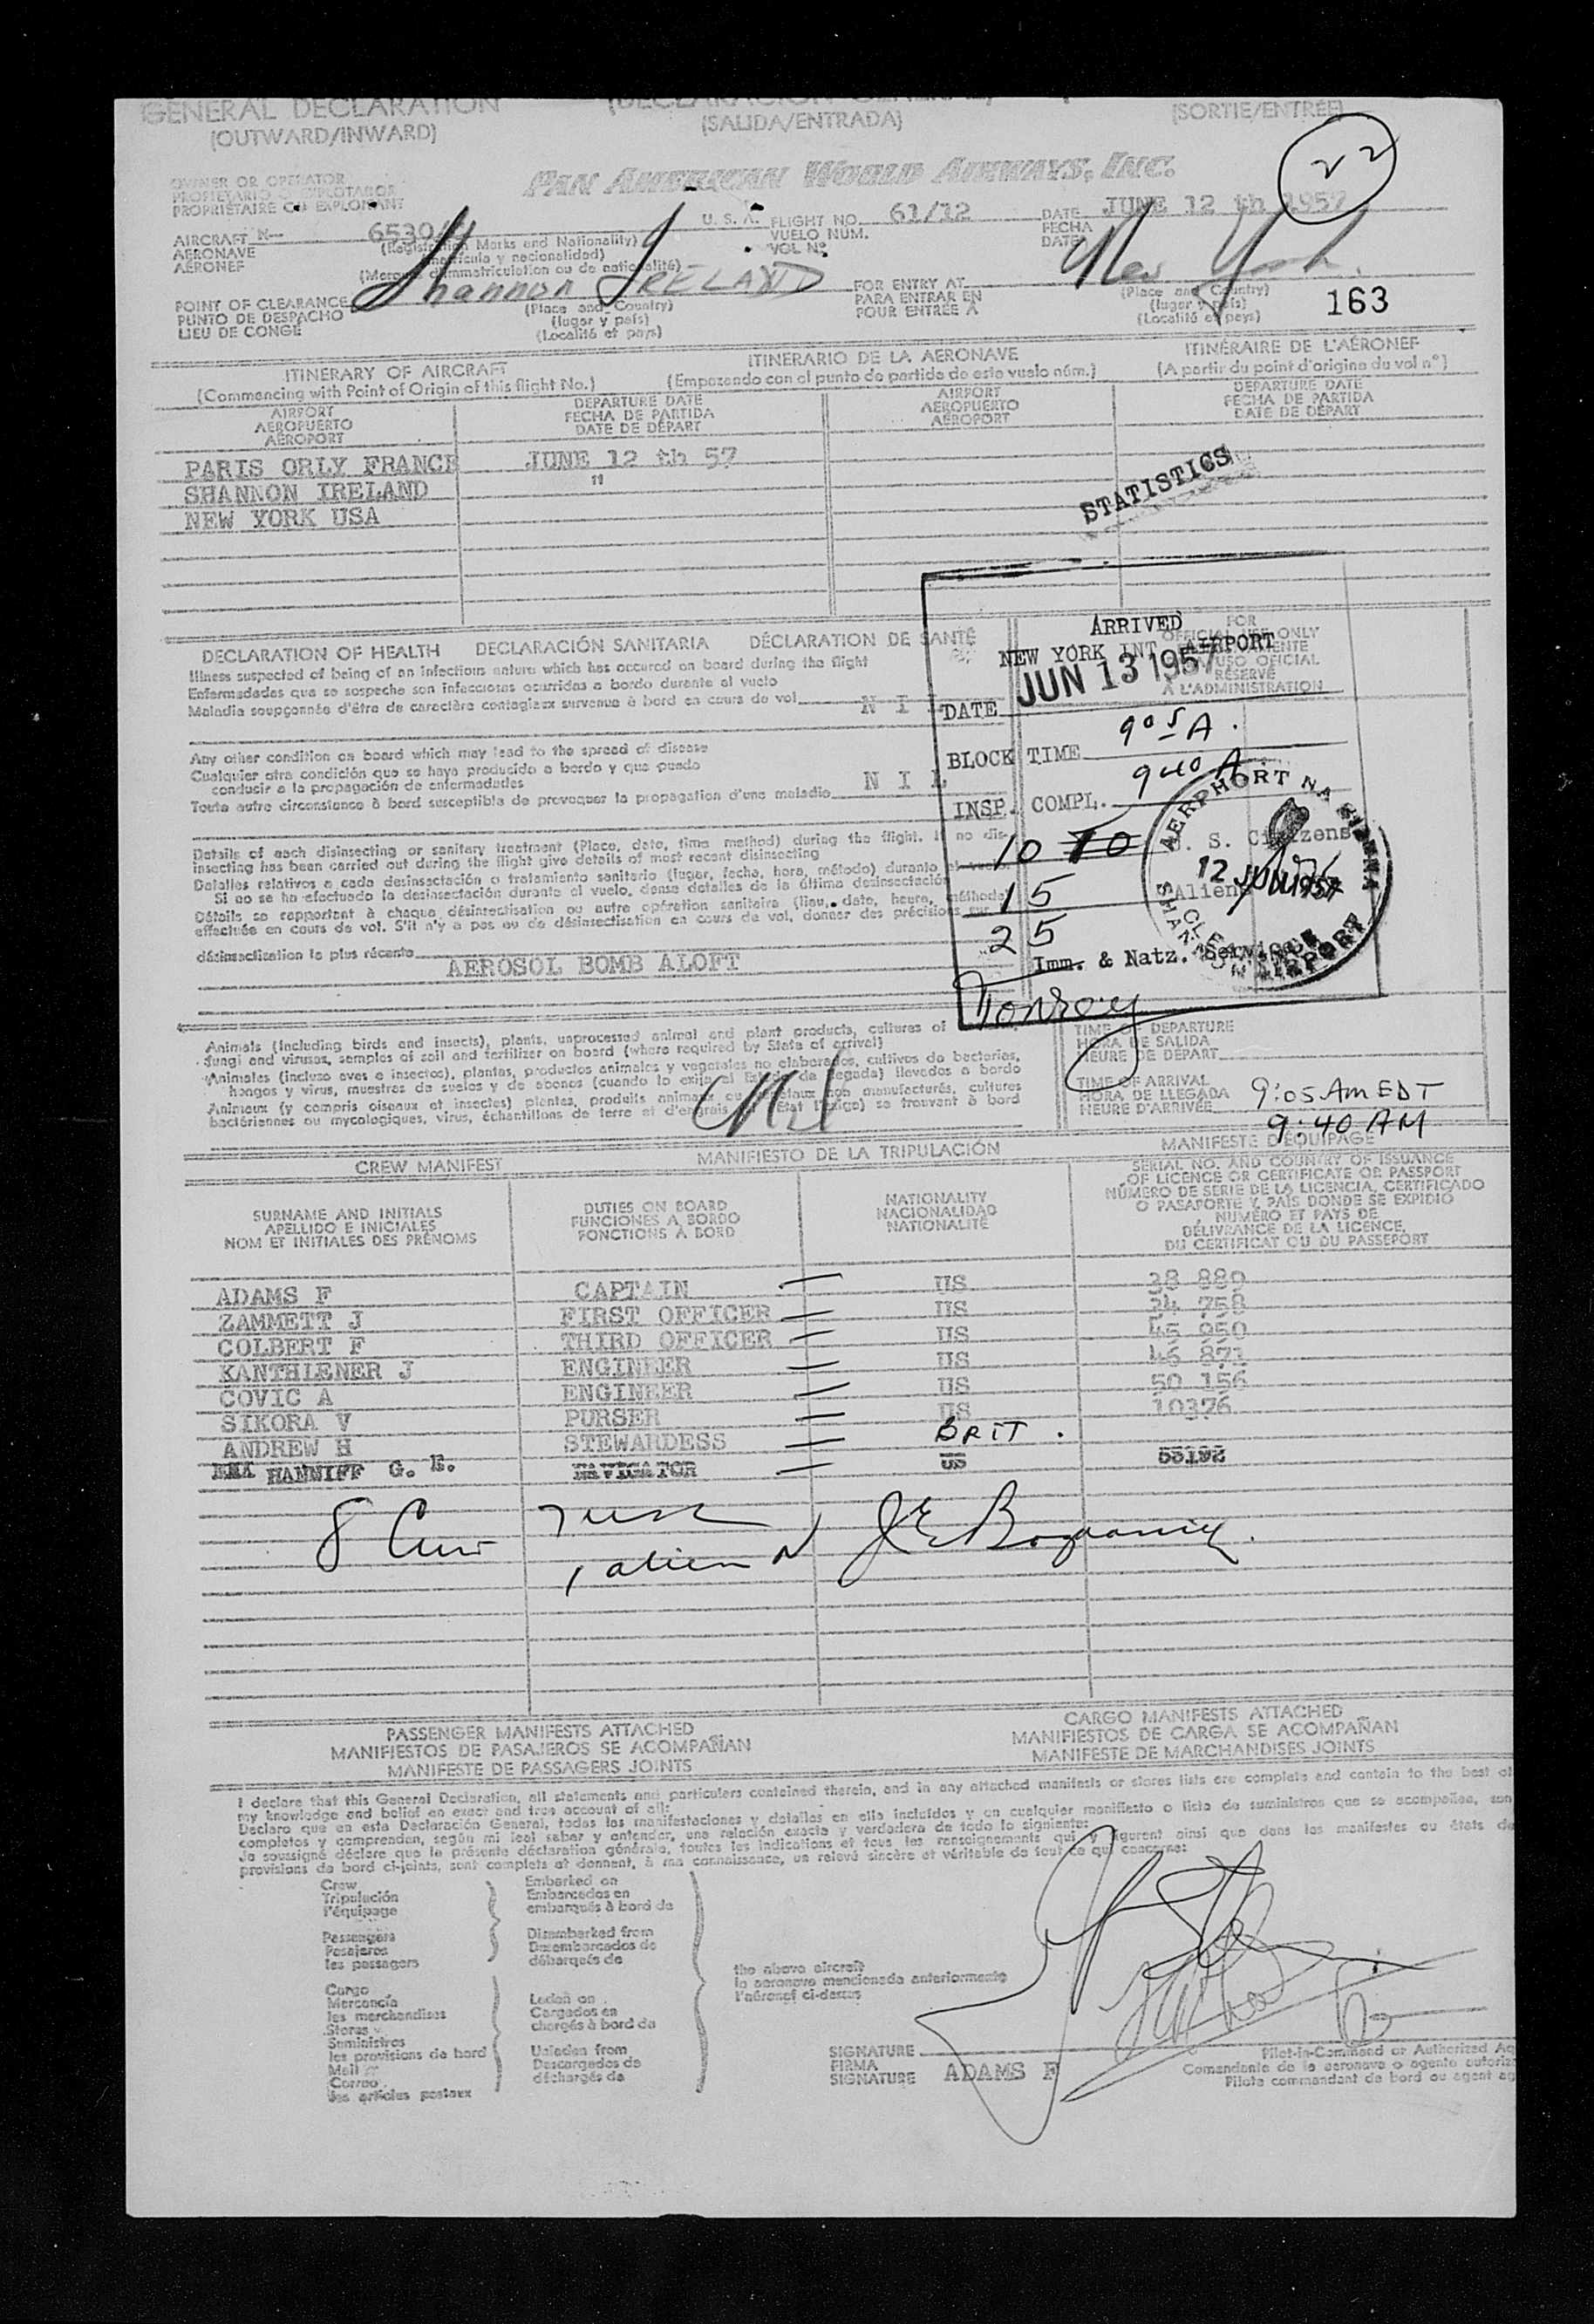 GENERAL DECLARATION
(OUTWARD/INWARD)
(SALIDA/ENTRADA)
(SORTIE/ENTRÉE)
22
OWNER OR OPERATOR
PROPIETARIO O EXPLOTADOR
PROPRIÉTAIRE OU EXPLOITANT
PAN AMERICAN WORLD AIRWAYS, INC.
AIRCRAFT N-
AERONAVE
AÉRONEF
(Registration Marks and Nationality)
(matrícula y nacionalidad)
(Marques d'immatriculation ou de nationalité)
U. S. A.
FLIGHT NO. 61/12
VUELO NUM.
VOL Nº
DATE JUNE 12 th 1957
FECHA
DATE
POINT OF CLEARANCE Shannon IRELAND
PUNTO DE DESPACHO
LIEU DE CONGÉ
(Place and Country)
(lugar y país)
(Localité et pays)
FOR ENTRY AT New York.
PARA ENTRAR EN
POUR ENTRÉE A
(Place and Country)
(lugar y país)
(Localité et pays)
163
ITINERARY OF AIRCRAFT ITINERARIO DE LA AERONAVE ITINÉRAIRE DE L'AÉRONEF
(Commencing with Point of Origin of this flight No.) (Empezando con el punto de partida de este vuelo núm.) (A partir du point d'origine du vol nº)
AIRPORT
AEROPUERTO
AÉROPORT
DEPARTURE DATE
FECHA DE PARTIDA
DATE DE DÉPART
AIRPORT
AEROPUERTO
AÉROPORT
DEPARTURE DATE
FECHA DE PARTIDA
DATE DE DÉPART
PARIS ORLY FRANCE JUNE 12 th 57
SHANNON IRELAND "
NEW YORK USA
STATISTICS
DECLARATION OF HEALTH DECLARACIÓN SANITARIA DÉCLARATION DE SANTÉ
Illness suspected of being of an infectious nature which has occured on board during the flight
Enfermedades que se sospeche son infecciosas ocurridas a bordo durante el vuelo
Maladie soupçonnée d'être de caractère contagieux survenue à bord en cours de vol NIL
Any other condition on board which may lead to the spread of disease
Cualquier otra condición que se haya producido a bordo y que pueda
conducir a la propagación de enfermedades
Toute autre circonstance à bord susceptible de provoquer la propagation d'une maladie NIL
Details of each disinsecting or sanitary treatment (Place, date, time method) during the flight. If no dis-
insecting has been carried out during the flight give details of most recent disinsecting
Detalles relativos a cada desinsectación o tratamiento sanitario (lugar, fecha, hora, método) durante el vuelo.
Si no se ha efectuado la desinsectación durante el vuelo, dense detalles de la última desinsectación
Détails se rapportant à chaque désinsectisation ou autre opération sanitaire (lieu, date, heure, méthode)
effectuée en cours de vol. S'il n'y a pas eu de désinsectisation en cours de vol, donner des précisions sur
désinsectisation la plus récente AEROSOL BOMB ALOFT
FOR
OFFICIAL USE ONLY
USO OFICIAL
RÉSERVÉ
A L'ADMINISTRATION
ARRIVED
NEW YORK INT. AIRPORT
DATE JUN 13 1957
BLOCK TIME 9 05 A.
INSP. COMPL. 940 A.
10 10 U. S. Citizens
15 Aliens
25
Imm. & Natz. Service
AERPHORT NA SIONNA
12 JUN 1957
CLEARANCE
SHANNON AIRPORT
Animals (including birds and insects), plants, unprocessed animal and plant products, cultures of
fungi and viruses, samples of soil and fertilizer on board (where required by State of arrival)
Animales (incluso aves e insectos), plantas, productos animales y vegetales no elaborados, cultivos de bacterias,
hongos y virus, muestras de suelos y de abonos (cuando lo exija el Estado de llegada) llevados a bordo
Animaux (y compris oiseaux et insectes) plantes, produits animaux ou végétaux non manufacturés, cultures
bactériennes ou mycologiques, virus, échantillons de terre et d'engrais (si l'État l'exige) se trouvant à bord
Nil
TIME OF DEPARTURE
HORA DE SALIDA
HEURE DE DÉPART
TIME OF ARRIVAL
HORA DE LLEGADA
HEURE D'ARRIVÉE
9:05 AM EDT
9:40 AM
CREW MANIFEST MANIFIESTO DE LA TRIPULACIÓN MANIFESTE D'ÉQUIPAGE
SURNAME AND INITIALS
APELLIDO E INICIALES
NOM ET INITIALES DES PRÉNOMS
DUTIES ON BOARD
FUNCIONES A BORDO
FONCTIONS À BORD
NATIONALITY
NACIONALIDAD
NATIONALITÉ
SERIAL NO. AND COUNTRY OF ISSUANCE
OF LICENCE OR CERTIFICATE OR PASSPORT
NÚMERO DE SERIE DE LA LICENCIA, CERTIFICADO
O PASAPORTE Y PAÍS DONDE SE EXPIDIÓ
NUMÉRO ET PAYS DE
DÉLIVRANCE DE LA LICENCE,
DU CERTIFICAT OU DU PASSEPORT
ADAMS F CAPTAIN US 38 889
ZAMMETT J FIRST OFFICER US 24 758
COLBERT F THIRD OFFICER US 45 950
KANTHLENER J ENGINEER US 46 871
COVIC A ENGINEER US 50 156
SIKORA V PURSER US 10376
ANDREW H STEWARDESS BRIT.
HANNIFF G. E. NAVIGATOR US
8 Crew 7 usc
1 alien
PASSENGER MANIFESTS ATTACHED
MANIFIESTOS DE PASAJEROS SE ACOMPAÑAN
MANIFESTE DE PASSAGERS JOINTS
CARGO MANIFESTS ATTACHED
MANIFIESTOS DE CARGA SE ACOMPAÑAN
MANIFESTE DE MARCHANDISES JOINTS
I declare that this General Declaration, all statements and particulars contained therein, and in any attached manifests or stores lists are complete and contain to the best of
my knowledge and belief an exact and true account of all:
Declaro que en esta Declaración General, todas las manifestaciones y detalles en ella incluidos y en cualquier manifiesto o lista de suministros que se acompañen, son
completos y comprenden, según mi leal saber y entender, una relación exacta y verdadera de todo lo siguiente:
Je soussigné déclare que la présente déclaration générale, toutes les indications et tous les renseignements qui y figurent ainsi que dans les manifestes ou états de
provisions de bord ci-joints, sont complets et donnent, à ma connaissance, un relevé sincère et véritable de tout ce qui concerne:
Crew
Tripulación
l'équipage
Passengers
Pasajeros
les passagers
Embarked on
Embarcados en
embarqués à bord de
Disembarked from
Desembarcados de
débarqués de
Cargo
Mercancía
les merchandises
Stores
Suministros
les provisions de bord
Mail
Correo
les articles postaux
Laden on
Cargados en
chargés à bord de
Unladen from
Descargados de
déchargés de
the above aircraft
la aeronave mencionada anteriormente
l'aéronef ci-dessus
SIGNATURE
FIRMA
SIGNATURE ADAMS F
Pilot-in-Command or Authorized Ag
Comandante de la aeronave o agente autoriz
Pilote commandant de bord ou agent ag